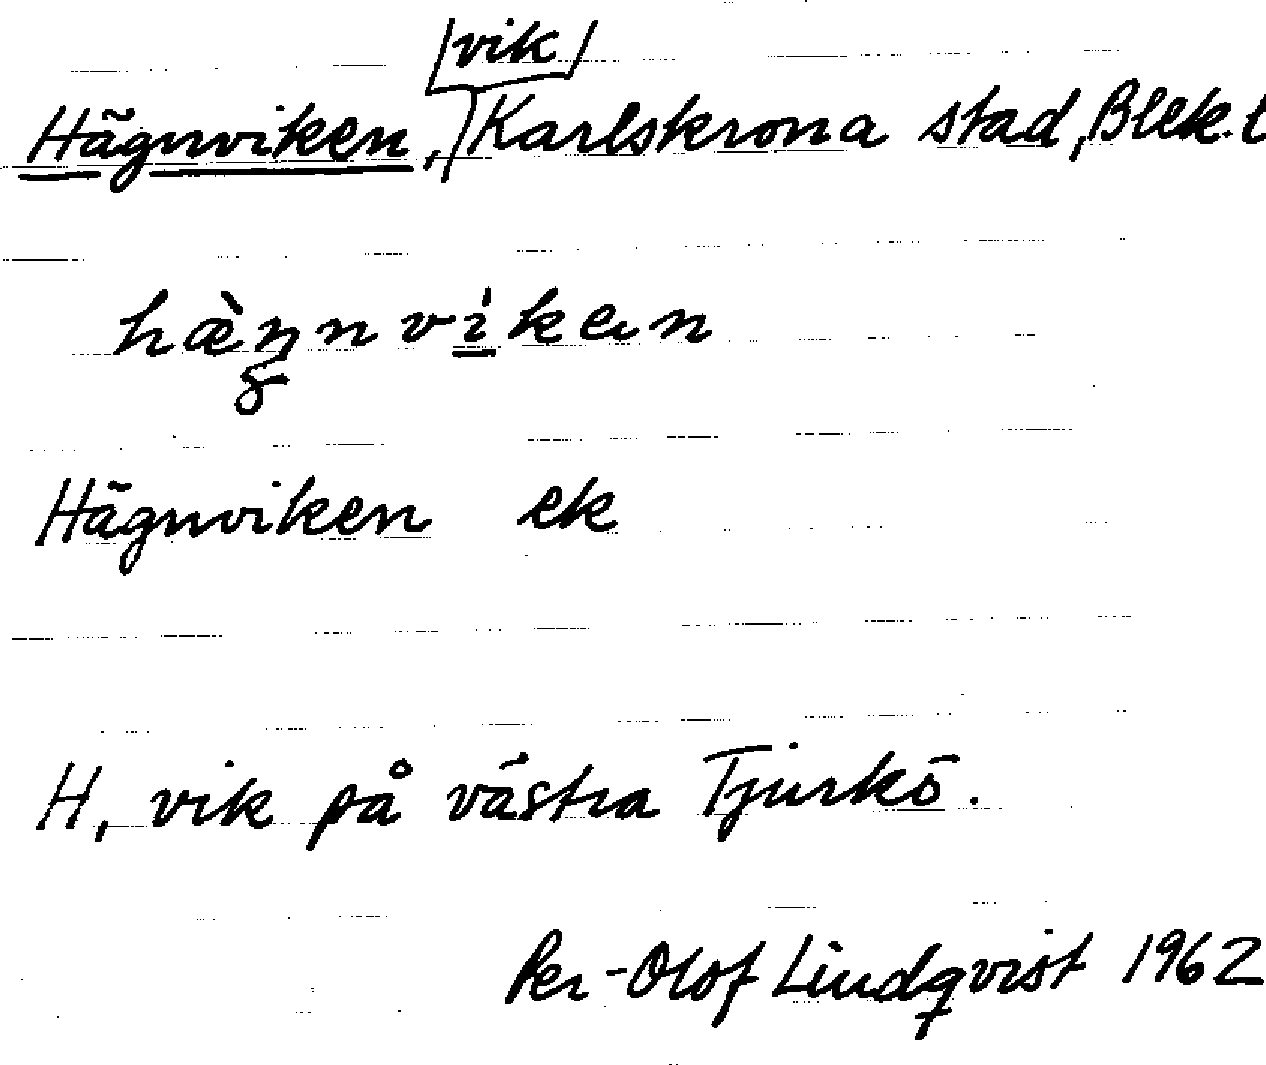 vik
Hägnviken, Karlskrona stad, Blek. l
hæ̀ŋnviken
Hägnviken ek
H, vik på västra Tjurkö.
Per-Olof Lindqvist 1962